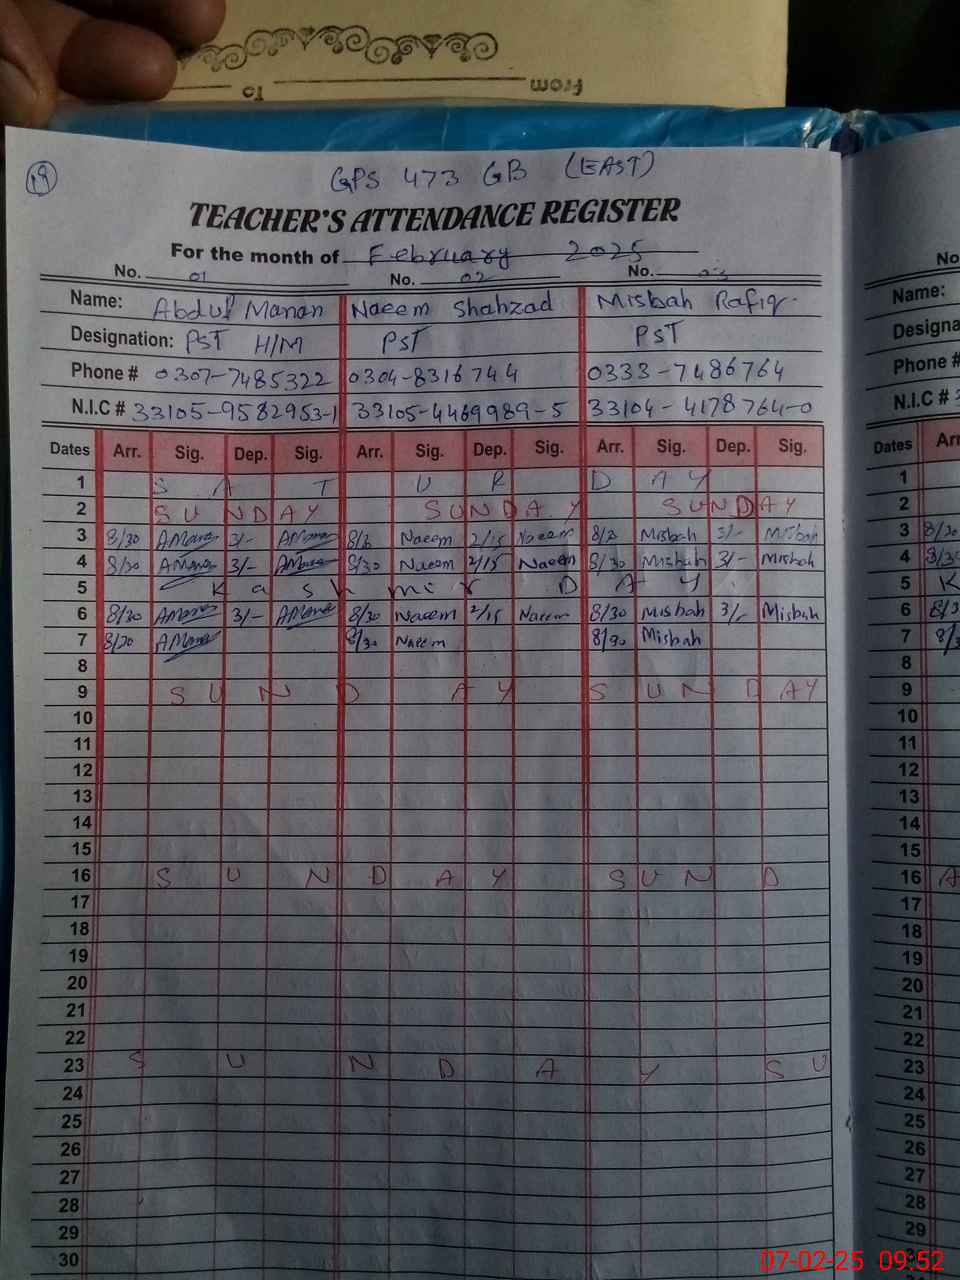 From
To
19
GPS 473 GB (EAST)
TEACHER'S ATTENDANCE REGISTER
For the month of February 2025
No. 01 No. 02 No. 03
Name: Abdul Manan Naeem Shahzad Misbah Rafiq
Designation: PST H/M PST PST
Phone # 0307-7485322 0304-8316744 0333-7486764
N.I.C # 33105-9582953-1 33105-4469989-5 33104-4178764-0
Dates Arr. Sig. Dep. Sig. Arr. Sig. Dep. Sig. Arr. Sig. Dep. Sig.
1 S A T U R D A Y
2 SUNDAY SUNDAY SUNDAY
3 8/30 AManan 3/- AManan 8/3 Naeem 2/15 Naeem 8/3 Misbah 3/- Misbah
4 8/30 AManan 3/- AManan 8/30 Naeem 2/15 Naeem 8/30 Misbah 3/- Misbah
5 Kashmir DAY
6 8/30 AManan 3/- AManan 8/30 Naeem 2/15 Naeem 8/30 Misbah 3/- Misbah
7 8/30 AManan 8/30 Naeem 8/30 Misbah
8
9 S U N D A Y S U N D A Y
10
11
12
13
14
15
16 S U N D A Y S U N D
17
18
19
20
21
22
23 S U N D A Y S U
24
25
26
27
28
29
30
No
Name:
Designa
Phone #
N.I.C #
Dates Arr
1
2
3 8/30
4 8/3
5 K
6 8/3
7 8/3
8
9
10
11
12
13
14
15
16 A
17
18
19
20
21
22
23
24
25
26
27
28
29
07-02-25 09:52